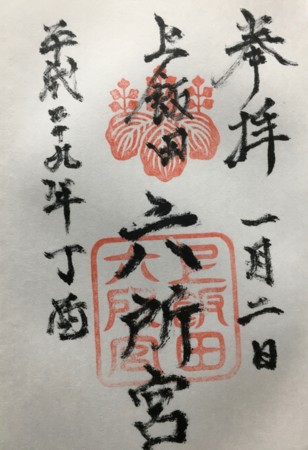 奉拝
一月二日
上飯田
六所宮
上飯田
六所宮
平成二十九年丁酉